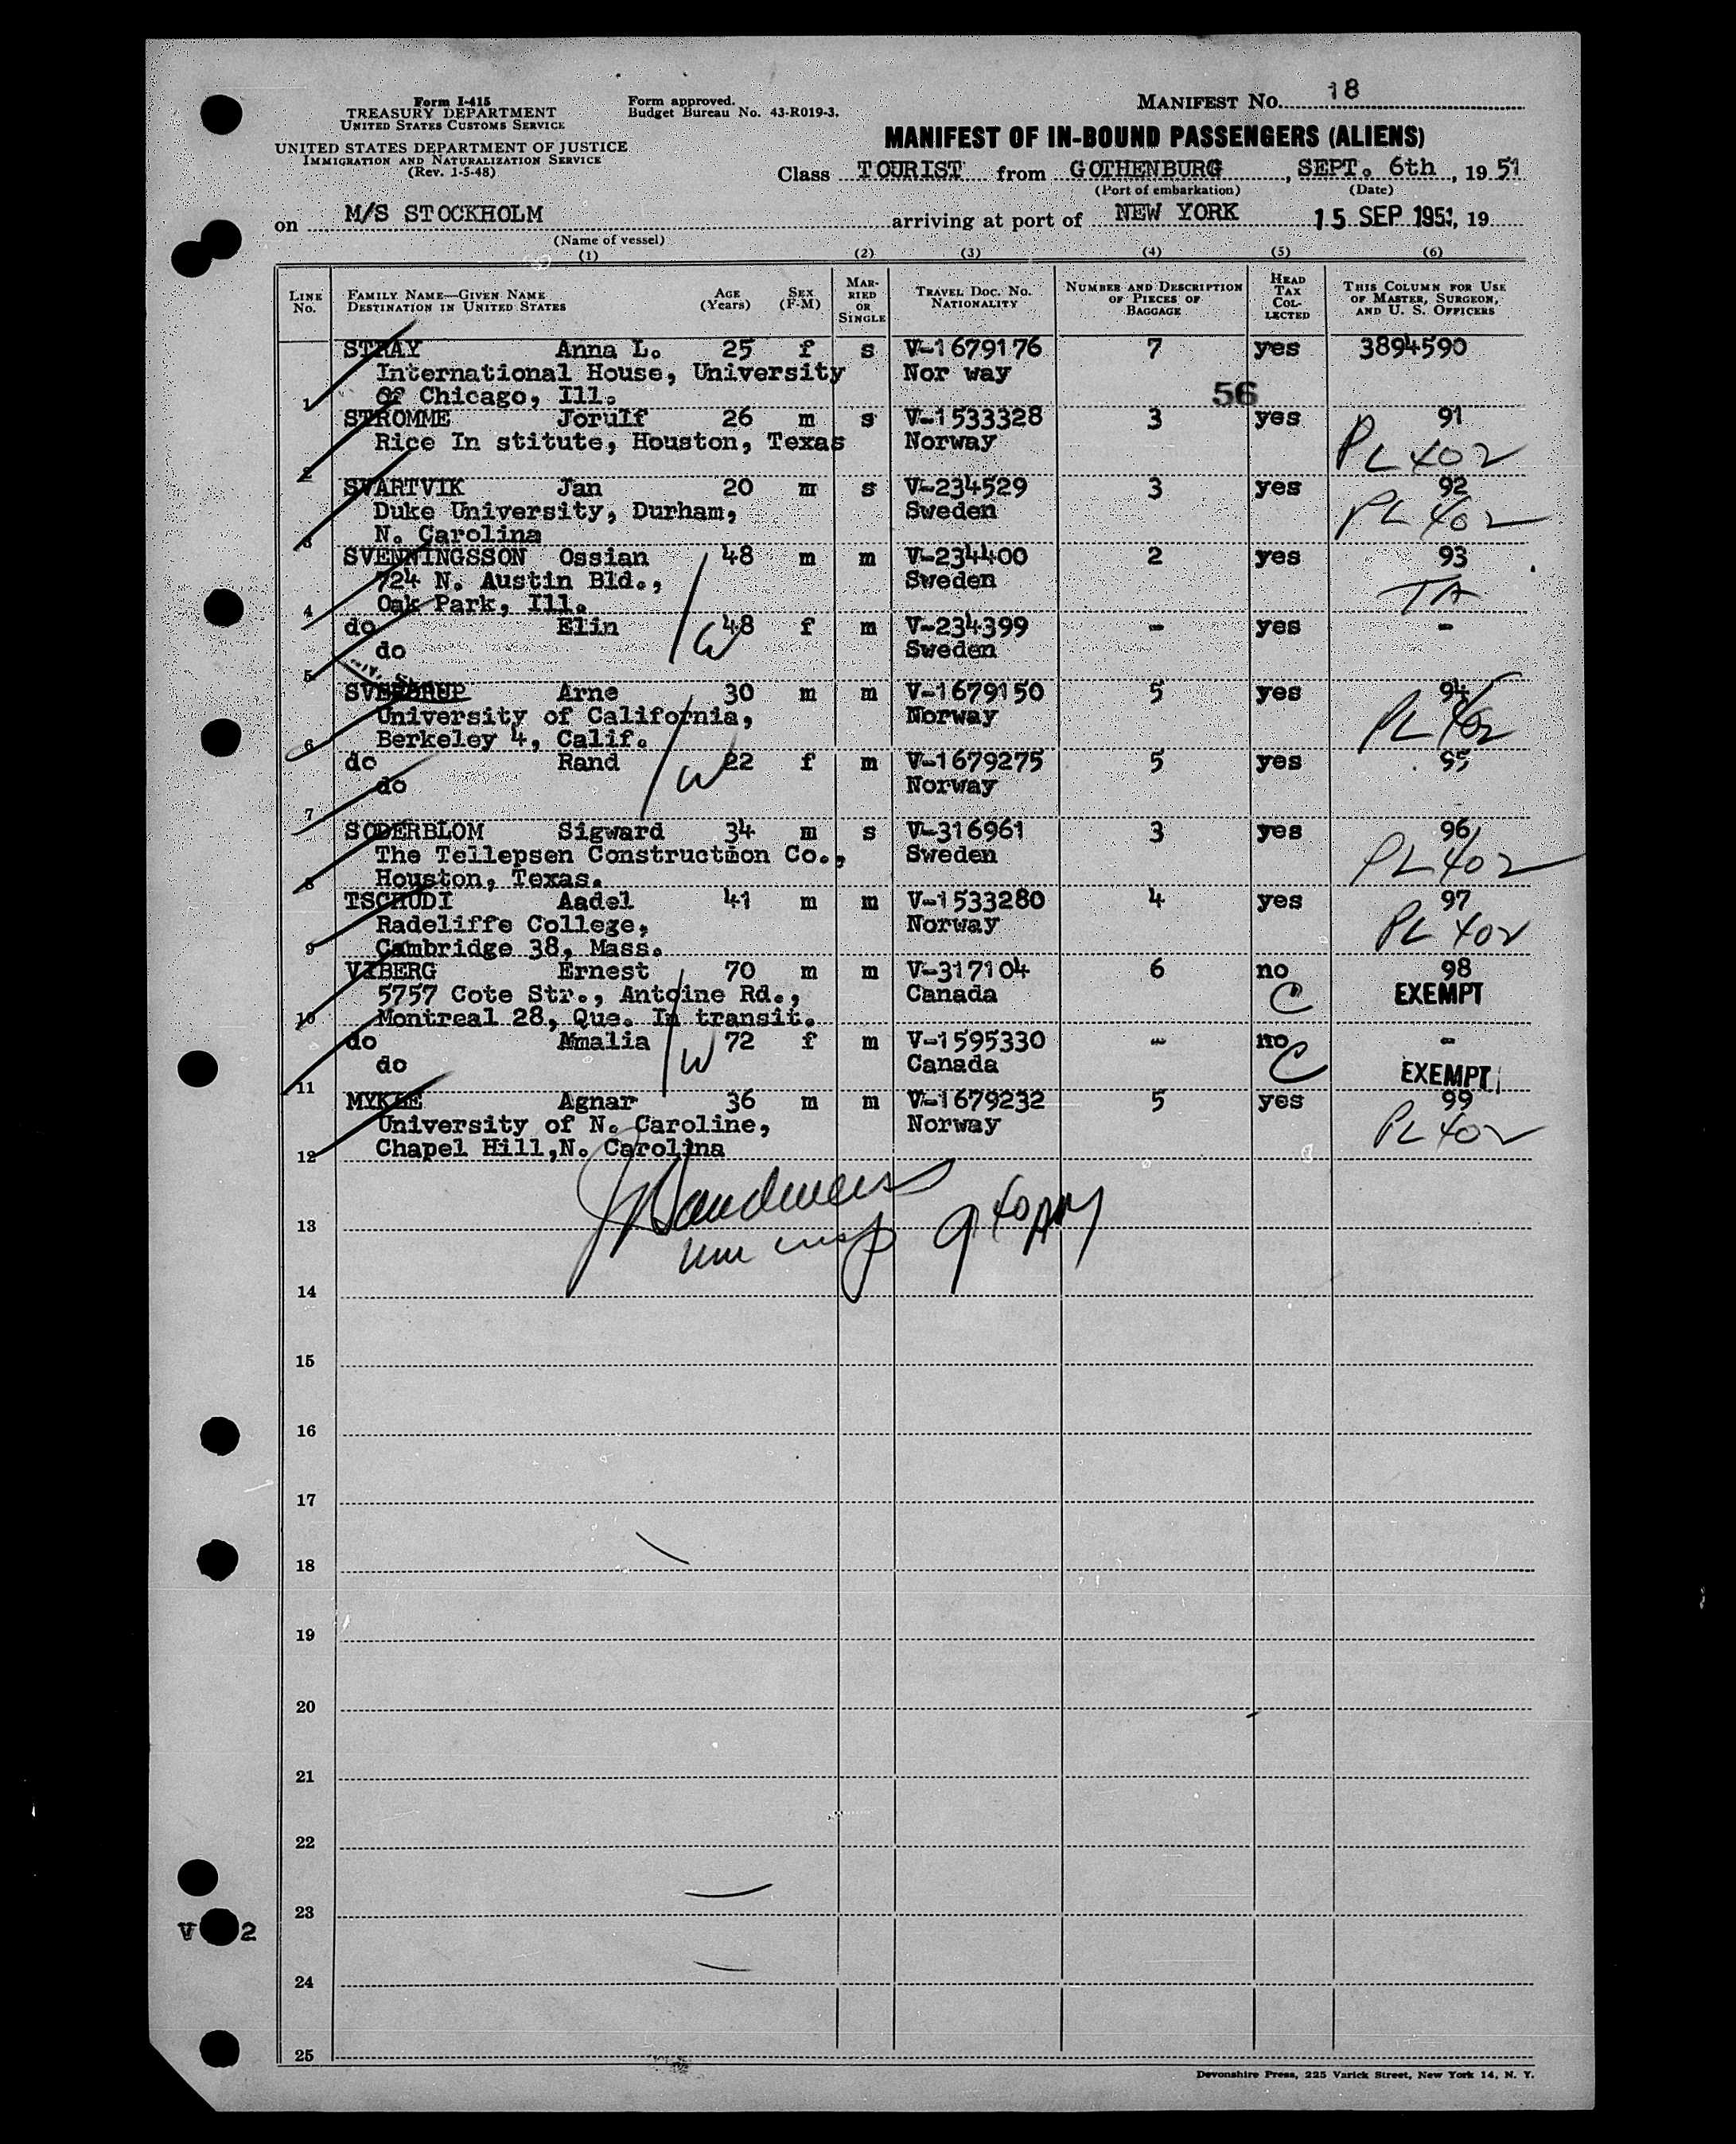 Form I-415
TREASURY DEPARTMENT
UNITED STATES CUSTOMS SERVICE
UNITED STATES DEPARTMENT OF JUSTICE
IMMIGRATION AND NATURALIZATION SERVICE
(Rev. 1-5-48)
Form approved.
Budget Bureau No. 43-R019-3.
MANIFEST No. 18
MANIFEST OF IN-BOUND PASSENGERS (ALIENS)
Class TOURIST from GOTHENBURG, SEPT. 6th, 1951
(Port of embarkation) (Date)
on M/S STOCKHOLM arriving at port of NEW YORK 15 SEP 1951, 19
(Name of vessel)
(1) (2) (3) (4) (5) (6)
LINE No. FAMILY NAME—GIVEN NAME DESTINATION IN UNITED STATES AGE (Years) SEX (F-M) MARRIED OR SINGLE TRAVEL DOC. NO. NATIONALITY NUMBER AND DESCRIPTION OF PIECES OF BAGGAGE HEAD TAX COLLECTED THIS COLUMN FOR USE OF MASTER, SURGEON, AND U. S. OFFICERS
STRAY Anna L. 25 f s V-1679176 7 yes 3894590
International House, University Nor way
1 Of Chicago, Ill. 56
STROMME Jorulf 26 m s V-1533328 3 yes 91
Rice In stitute, Houston, Texas Norway PL 402
2
SVARTVIK Jan 20 m s V-234529 3 yes 92
Duke University, Durham, Sweden PL 402
3 N. Carolina
SVENNINGSSON Ossian 48 m m V-234400 2 yes 93
724 N. Austin Bld., Sweden TA
4 Oak Park, Ill.
do Elin 48 f m V-234399 - yes -
do W Sweden
5
SVERDRUP Arne 30 m m V-1679150 5 yes 94
University of California, Norway PL 402
6 Berkeley 4, Calif.
do Rand 22 f m V-1679275 5 yes 95
do W Norway
7
SODERBLOM Sigward 34 m s V-316961 3 yes 96
The Tellepsen Construction Co., Sweden PL 402
8 Houston, Texas.
TSCHUDI Aadel 41 m m V-1533280 4 yes 97
Radeliffe College, Norway PL 402
9 Cambridge 38, Mass.
VIBERG Ernest 70 m m V-317104 6 no 98
5757 Cote Str., Antoine Rd., Canada C EXEMPT
10 Montreal 28, Que. In transit.
do Amalia 72 f m V-1595330 - no -
do W Canada C EXEMPT
11
MYKLE Agnar 36 m m V-1679232 5 yes 99
University of N. Caroline, Norway PL 402
12 Chapel Hill,N. Carolina
imm insp 9 40 AM
13
14
15
16
17
18
19
20
21
22
23
24
25
V 2
Devonshire Press, 225 Varick Street, New York 14, N. Y.